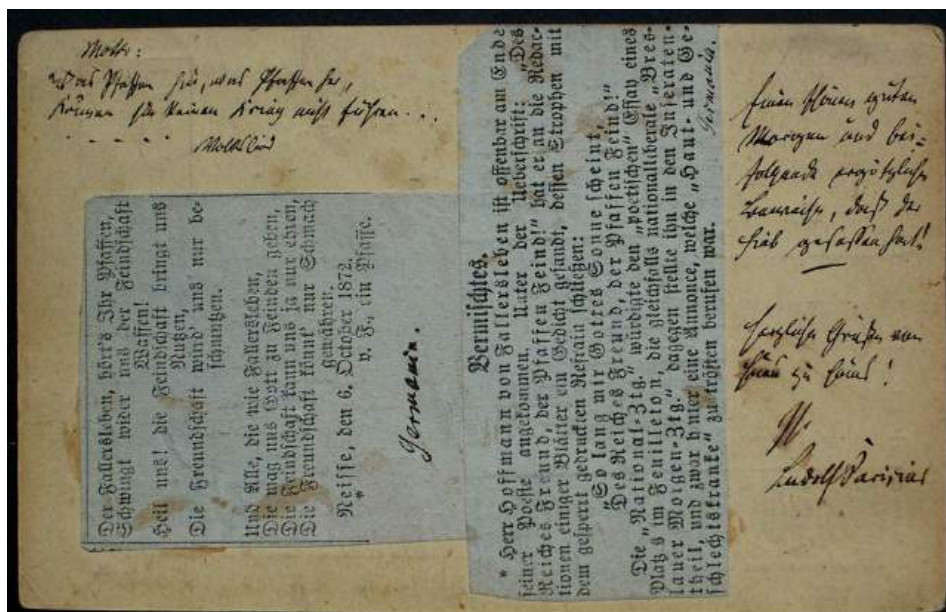 Motto:
Was Pfaffen hin, was Pfaffen her,
Können sie keinen Krieg nicht führen...
. . . . . Volkslied
Der Fallersleben, hört's Ihr Pfaffen,
Schwingt wider uns der Feindschaft
Waffen!
Heil uns! die Feindschaft bringt uns
Nutzen,
Die Freundschaft würd' uns nur be-
schmutzen.
Und Alle, die wie Fallersleben,
Die mag uns Gott zu Feinden geben,
Die Feindschaft kann uns ja nur ehren,
Die Freundschaft könnt' nur Schmach
gewähren.
Neisse, den 6. October 1872.
v. F., ein Pfaffe.
Germania.
Vermischtes.
* Herr Hoffmann von Fallersleben ist offenbar am Ende
seiner Poesie angekommen. Unter der Ueberschrift: „Des
Reiches Freund, der Pfaffen Feind" hat er an die Redac-
tionen einiger Blätter ein Gedicht gesandt, dessen Strophen mit
dem gesperrt gedruckten Refrain schließen:
So lang mir Gottes Sonne scheint,
Des Reiches Freund, der Pfaffen Feind."
Die „National-Ztg." würdigte den „poetischen" Essay eines
Platzs im Feuilleton, die gleichfalls nationalliberale „Bres-
lauer Morgen-Ztg." dagegen stellte ihn in den Inseraten-
theil, und zwar hinter eine Annonce, welche „Haut- und Ge-
schlechtskranke" zu trösten berufen war.
Germania.
Einen schönen guten
Morgen und bei-
folgende ergötzliche
, daß der
Hieb gesessen hat!
Herzliche Grüße von
Haus zu Haus!
Ihr
Ludolf Parisius